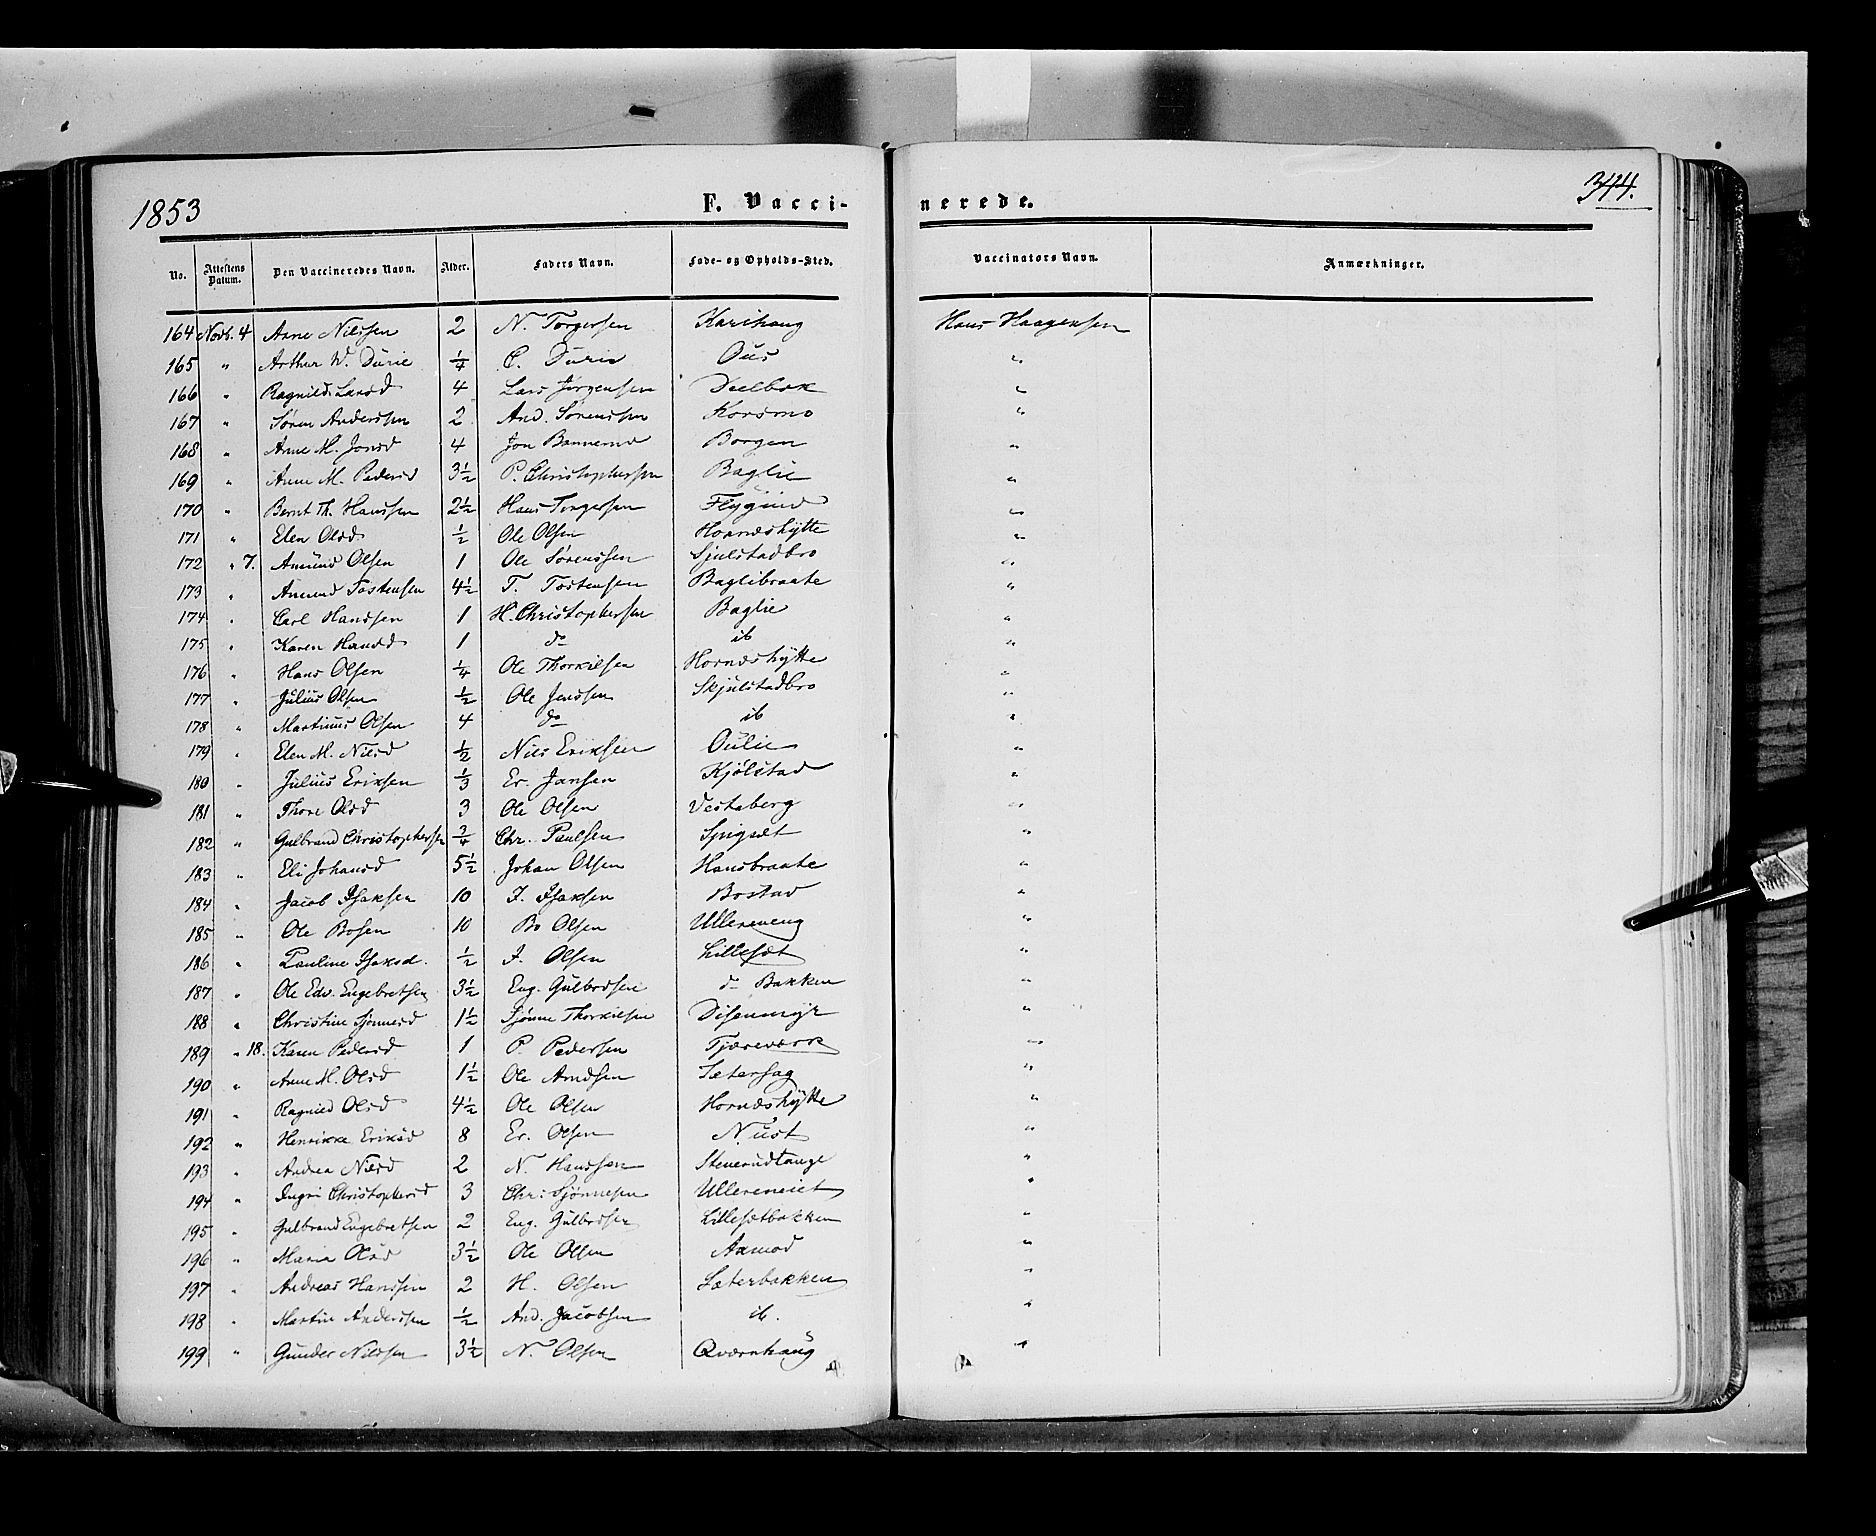 1853 F. Vacci- nerede. 344.
No. Attestens Datum. Den Vaccineredes Navn. Alder. Faders Navn. Føde- og Opholds-Sted. Vaccinators Navn. Anmærkninger.
164 Novb. 4 Arne Nilssen 2 N. Torgersen Karihaug Hans Haagensen
165 " Arthur W. Durie 1/4 C. Durie Ous "
166 " Ragnild Larsd 4 Lars Jørgensen Deelbæk "
167 " Søren Anderssen 2 And. Sørenssen Korsmo "
168 " Anne M. Jonsd 4 Jon Bannerud Borgen "
169 " Anne M. Pedersd 3 1/2 P. Christophersen Baglie "
170 " Bernt Th. Hanssen 2 1/2 Hans Torgersen Flygind "
171 " Elen Olsd 1/2 Ole Olsen Hornæshytte "
172 " 7. Amund Olsen 1 Ole Sørenssen Sjulstadbro "
173 " Amund Tostensen 4 1/2 T. Tostensen Baglibraate "
174 " Carl Handsen 1 H. Christophersen Baglie "
175 " Karen Hansd 1 do ib "
176 " Hans Olsen 1/4 Ole Thorkilsen Hornæshytte "
177 " Julius Olsen 1/2 Ole Jenssen Skjulstadbro "
178 " Martinus Olsen 4 do ib "
179 " Elen M. Nilsd 1/2 Nils Eriksen Oulie "
180 " Julius Eriksen 1/3 Er. Jansen Kjølstad "
181 " Thore Olsd 3 Ole Olsen Vestaberg "
182 " Gulbrand Christophersen 3/4 Chr. Paulsen Spigsæt "
183 " Eli Johansd 5 1/2 Johan Olsen Hansbraate "
184 " Jacob Isaksen 10 I. Isaksen Bostad "
185 " Ole Bosen 10 Bo Olsen Ullereneng "
186 " Pauline Isaksd. 1/2 I. Olsen Lillesæt "
187 " Ole Edv. Engebretsen 3 1/2 Eng. Gulbrdsen do Bakken "
188 " Christine Sjønnesd 1 1/2 Sjønne Thorkilsen Disenmyr "
189 " 18. Karen Pedersd 1 P. Pedersen Tjæreværk "
190 " Anne M. Olsd 1 1/2 Ole Arndsen Sætersag "
191 " Ragnild Olsd 4 1/2 Ole Olsen Hornæshytte "
192 " Henrikke Eriksd 8 Er. Olsen Nust "
193 " Andrea Nilsd 2 N. Hanssen Stenerudtange "
194 " Ingri Christophersd 3 Chr. Sjønnesen Ullereneiet "
195 " Gulbrand Engebretsen 2 Eng. Gulbrdsen Lillesætbakken "
196 " Maria Olsd 3 1/2 Ole Olsen Aamod "
197 " Andreas Hanssen 2 H. Olsen Sæterbakken "
198 " Martin Anderssen 1/2 And. Jacobsen ib. "
199 " Gunder Nilssen 3 1/2 N. Olsen Qværnhaug "